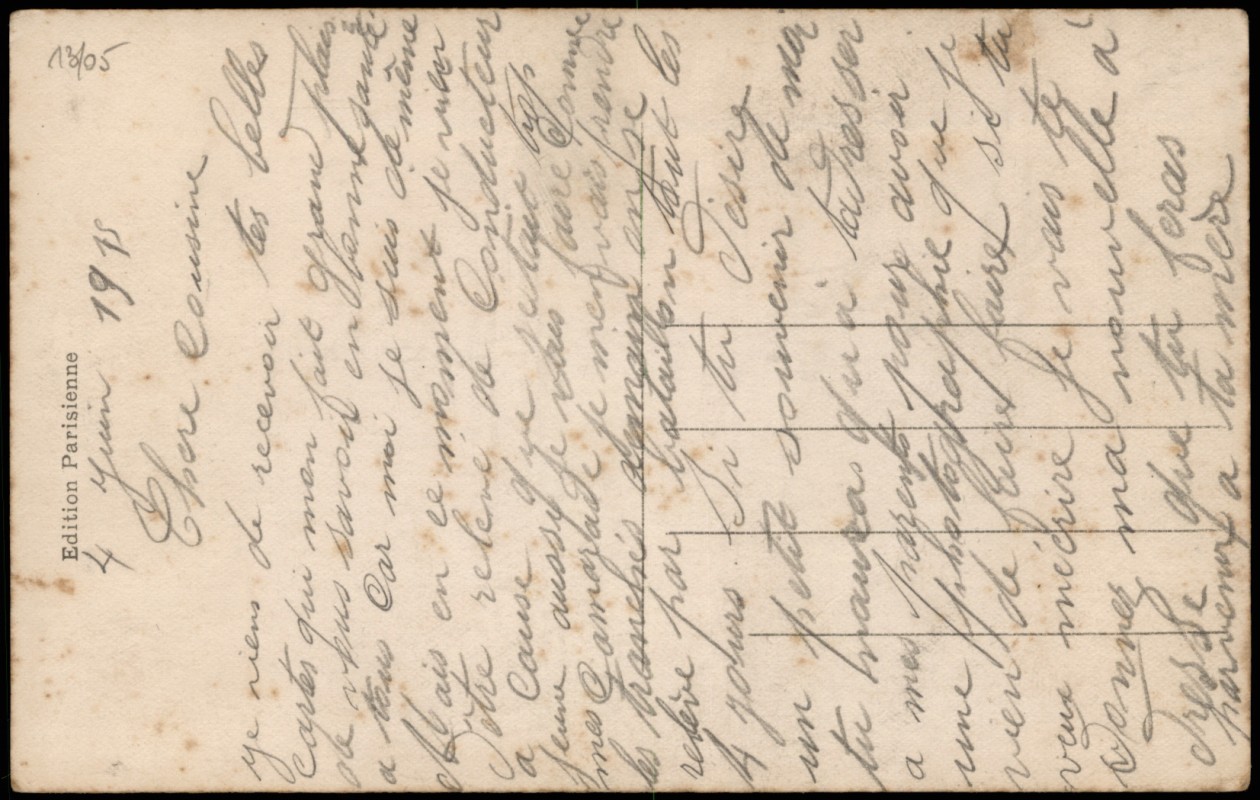 13/05
Edition Parisienne
4 Juin 1915
Chere Cousine
Je vien de recevoir tes belles
Cartes qui mon fait Grand plais
de vous savoir en bonne santé
a tous Car moi je suis de même
Mais en ce moment je vien
d'être relevé de Conducteur
a Cause que jetait
jeune aussi je vais faire Comme
mes Camarade je men vais prendre
les tranchés demain on se
relève par bataillon tout les
4 jours Si tu Désire
un petit souvenir de moi
tu nauras qua tadresser
a mes parents pour avoir
une photographie que je
vien de faire faire si tu
veux mécrire Je vais te
Donnez ma nouvelle a
dresse que tu feras
parvenir a ta mère